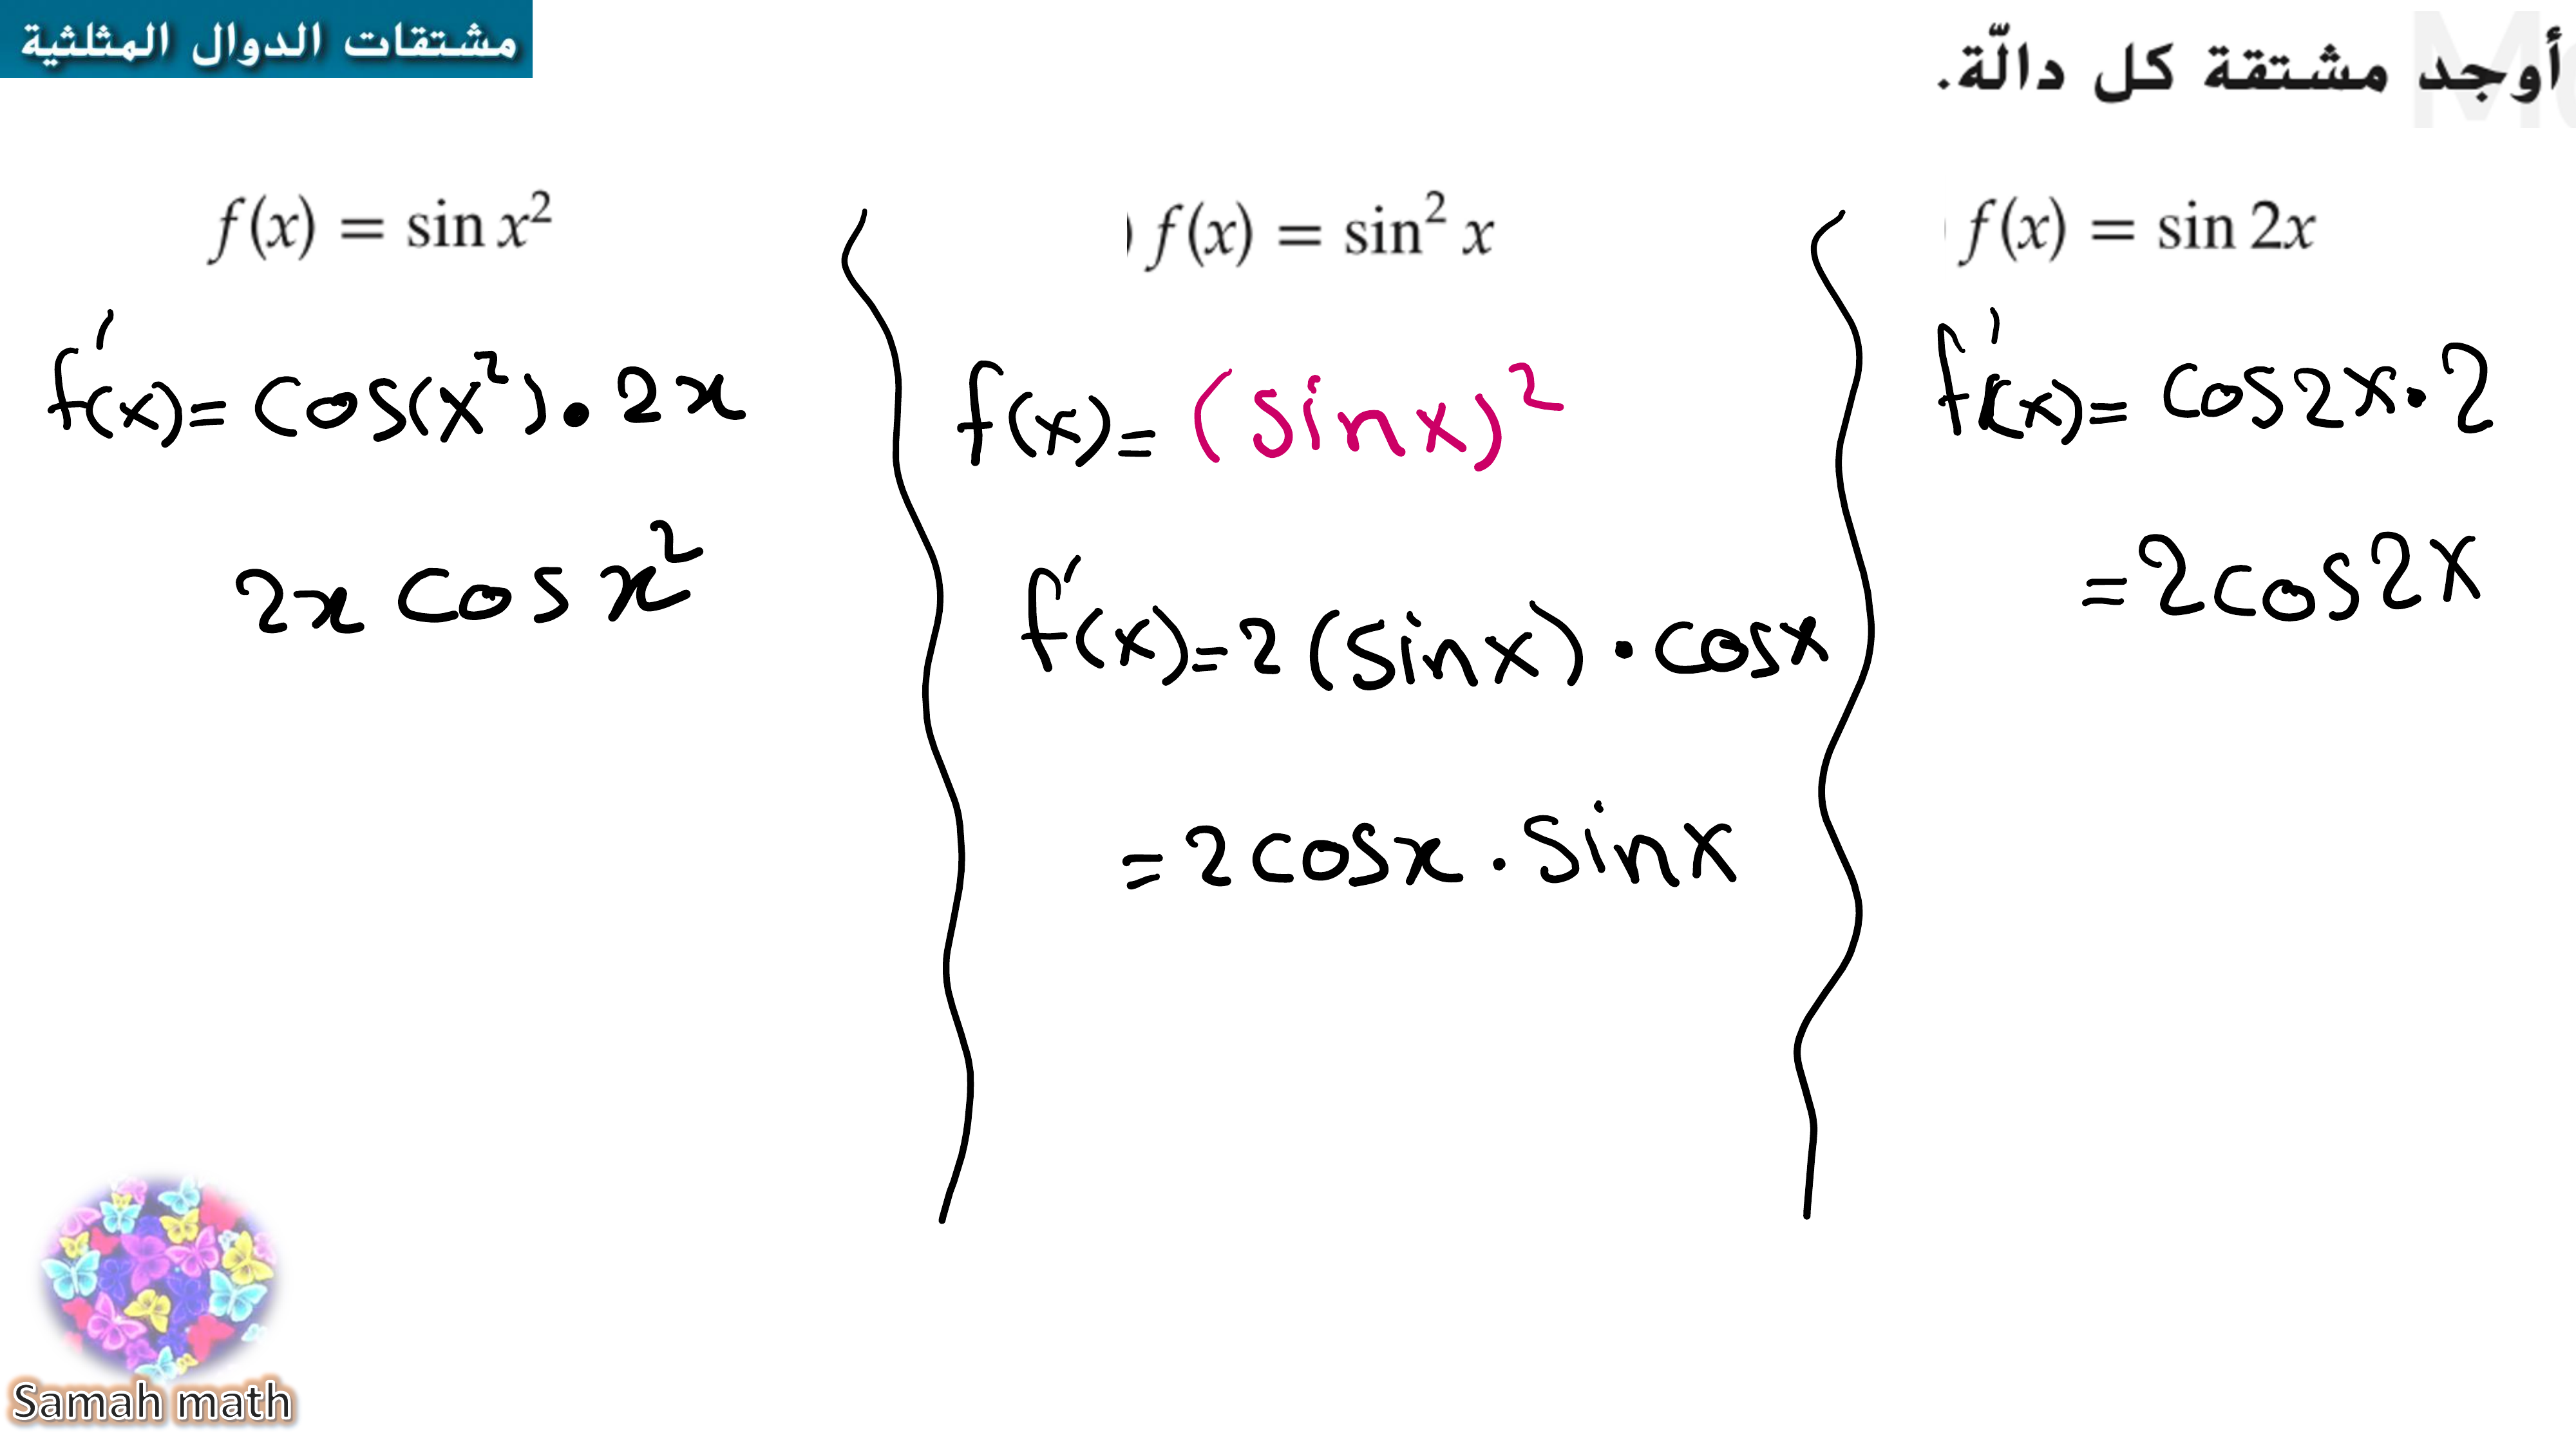 مشتقات الدوال المثلثية
أوجد مشتقة كل دالّة.
f(x) = sin x²
f'(x) = cos(x²) · 2x
2x cos x²
) f(x) = sin² x
f(x) = (sin x)²
f'(x) = 2 (sin x) · cos x
= 2 cos x · sin x
f(x) = sin 2x
f'(x) = cos 2x · 2
= 2 cos 2x
Samah math